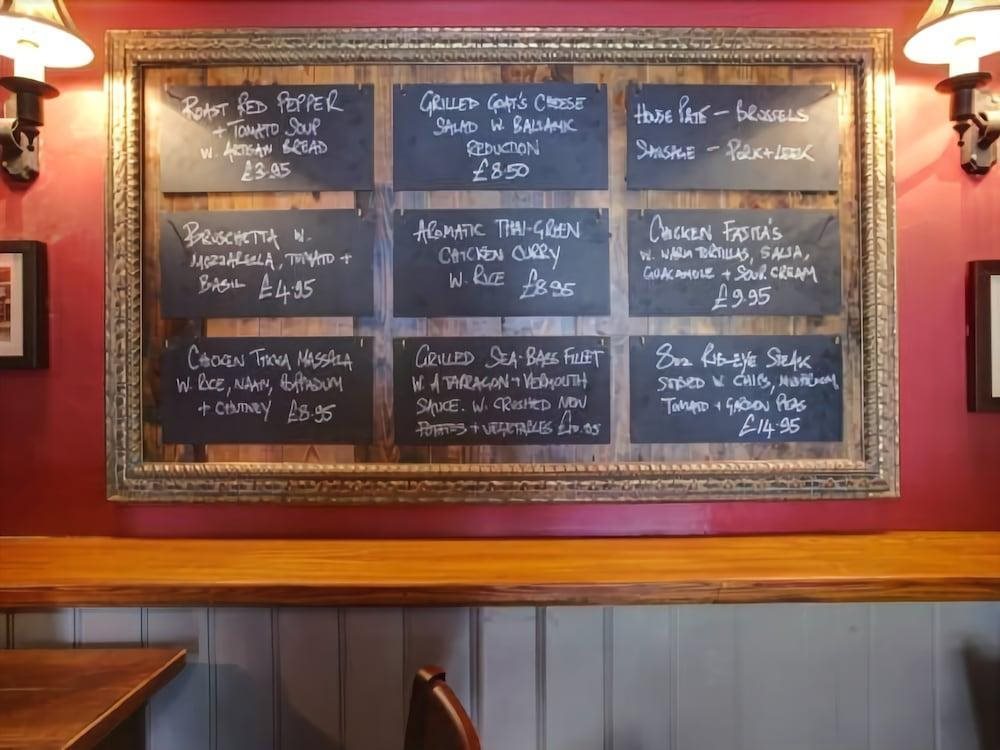 ROAST RED PEPPER
+ TOMATO SOUP
W. ARTISAN BREAD
£3.95
GRILLED GOAT'S CHEESE
SALAD W. BALSAMIC
REDUCTION
£8.50
HOUSE PATE – BRUSSELS
SAUSAGE – PORK + LEEK
BRUSCHETTA W.
MOZZARELLA, TOMATO +
BASIL £4.95
AROMATIC THAI-GREEN
CHICKEN CURRY
W. RICE £8.95
CHICKEN FAJITA'S
W. WARM TORTILLAS, SALSA,
GUACAMOLE + SOUR CREAM
£9.95
CHICKEN TIKKA MASSALA
W. RICE, NAAN, POPPADUM
+ CHUTNEY £8.95
GRILLED SEA-BASS FILLET
W. A TARRAGON + VERMOUTH
SAUCE. W. CRUSHED NEW
POTATOES + VEGETABLES
8oz RIB-EYE STEAK
SERVED W. CHIPS, MUSHROOM,
TOMATO + GARDEN PEAS
£14.95